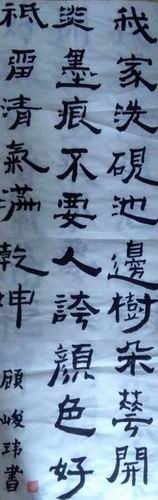 我家洗硯池邊樹朵蕚開
淡墨痕不要人誇顏色好
祇畱清氣滿乾坤
顧峻瑋書